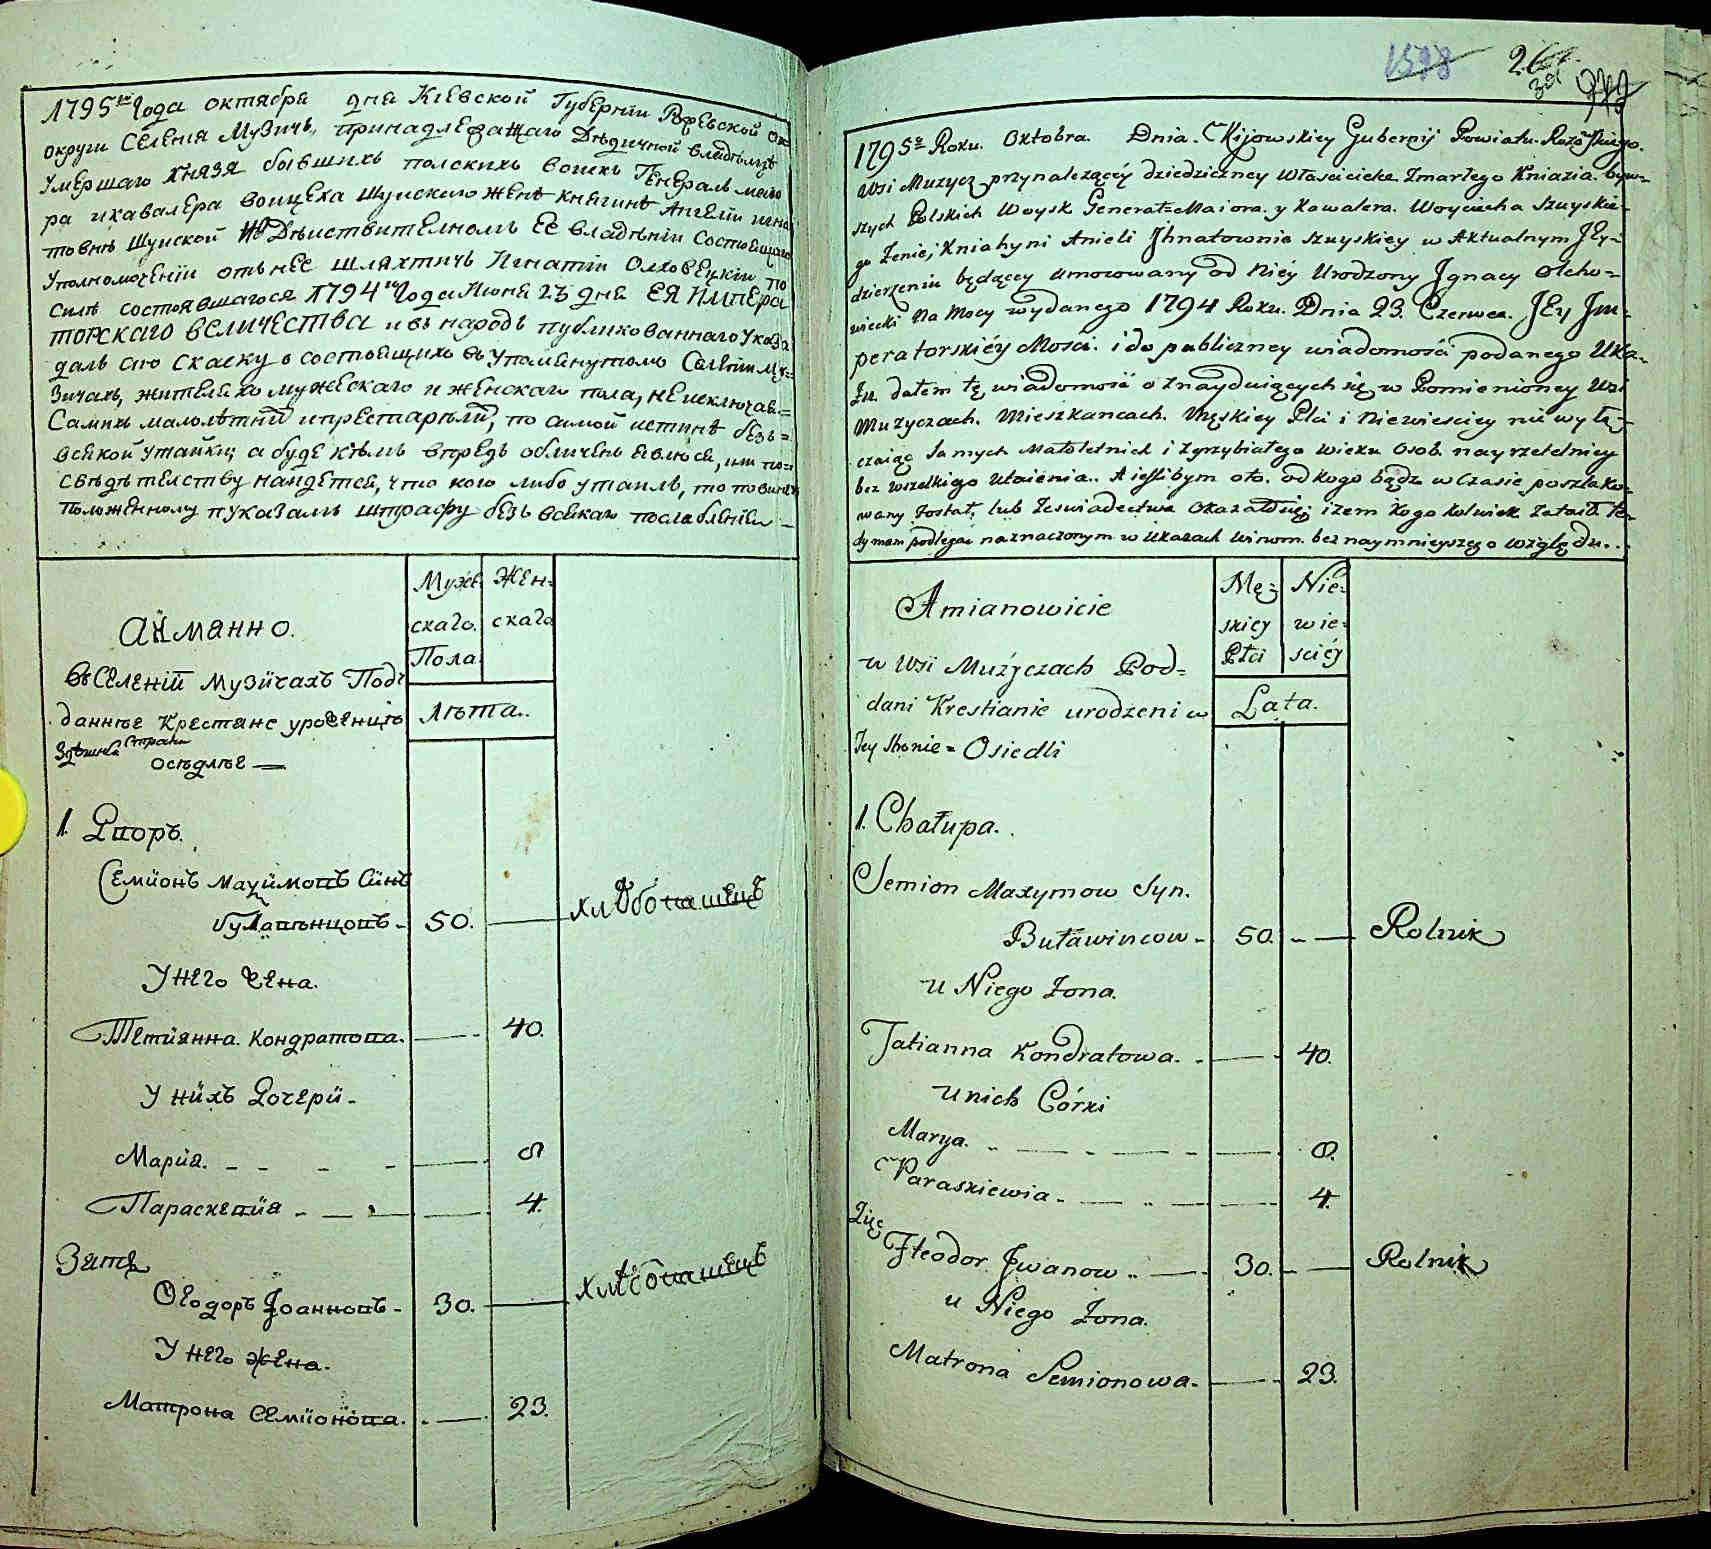 1795го Года октября дня Кіевской Губерніи
округи Селенія Музичъ, принадлежащаго Дѣдичной владѣлцѣ
умершаго Князя бывшихъ полскихъ воискъ Генералъ маіо
ра икавалера воицеха Шуискаго женѣ княгинѣ Ангели игна
товнѣ Шуиской Дѣиствителномъ ЕЕ владѣніи Состоящаго
Уполномоченіи отънее шляхтичь Игнатіи Олховецкіи По
силѣ состоявшагося 1794го Года Июня 23 дня ЕЯ ИМПЕРА
ТОРСКАГО ВЕЛИЧЕСТВА ивъ народъ публикованнаго Указа
далъ сию скаску о состоящихъ въ упомянутомъ Селеніи Му=
зичахъ, жителяхъ мужескаго и женскаго пола, неисключая=
Самихъ малолѣтнй ипрестарѣлй, по самой истинѣ безъ=
всякой утайки; а буде кѣмъ впредь обличенъ явлюся, или по=
свѣдѣтелству найдется, что кого либо утаилъ, то повиненъ
положенному пуказамъ штрафу безъ всякаго послабленія _
Аймянно.
Муже
скаго.
Пола.
Жен=
скаго
въСЕЛЕНІЙ МУЗЙЧАХЪ Подъ
данные Крестяне уроженціѣ
Здѣшнѣй Страни
осѣдлѣе —
Лѣта..
1. Дворъ.
Семйонъ Маѯймовъ Сйнъ
Булавѣнцовъ - 50. — хлѣбопашецъ
У Него Жена.
Тетйянна. Кондратова. — 40.
У нйхъ Дочерй -
Марйя. - - - - — 8
Параскевйя - — - — 4.
Зять
Ѳеодоръ Іоанновъ - 30. — хлѣбопашецъ
У него жена.
Матрона Семйонова. - — 23.
1598 264.
391
1795го Roku. Oktobra. Dnia. Kijowskiey Gubernij Powiatu
Wsi Muzycz przynalezącéy dziedziczney Właścicielce Zmarłego Kniazia. byw=
szych Polskich Woysk Generał=Maiora. y Kawalera. Woyciecha Szuyskie=
go Żenie, Kniahyni Anieli Jhnatownie Szuyskiey w Aktualnym JEy=
dzierżeniu będącey Umocowany od Niéy Urodzony Jgnacy Olcho=
wiecki Na Mocy wydanego 1794 Roku. Dnia 23. Czerwca. JEy Jm=
peratorskiéy Mości. i do publiczney wiadomości podanego Uka=
zu. dałem tę wiadomość o znayduiących się w Pomienioney Wsi
Muzyczach. Mieszkancach. Męskiey Płci i Niewiesciey nie wyłą=
czaiąc Samych Małoletnich i zgrzybiałego wieku Osob. nayrzetelniey
bez wszelkiego Utaienia.. A ieślibym oto. od kogo bądz w Czasie poszlako=
wany został, lub Zeswiadectwa Okazałosię; izem Kogo kolwiek Zataił. te=
dy mam podlegac naznaczonym w Ukazach Winom. beznaymnieyszego Względu...
Amianowicie
Mę=
skiey
Płci
Nie=
wie=
sciéy
w Wsi Muźyczach Pod=
dani Krestianie urodzeni w
Tey Stonie = Osiedli
Lata.
1. Chałupa.
Semion Maxymow Syn.
Buławincow - 50. - — Rolnik
u Niego Zona.
Tatianna Kondratowa. - — 40.
unich Córki
Marya. - — - — - — 8.
Paraskiewia - — - — 4.
Zięc
Fteodor. Jwanow - — 30. - — Rolnik
u Niego Zona.
Matrona Semionowa. — 23.